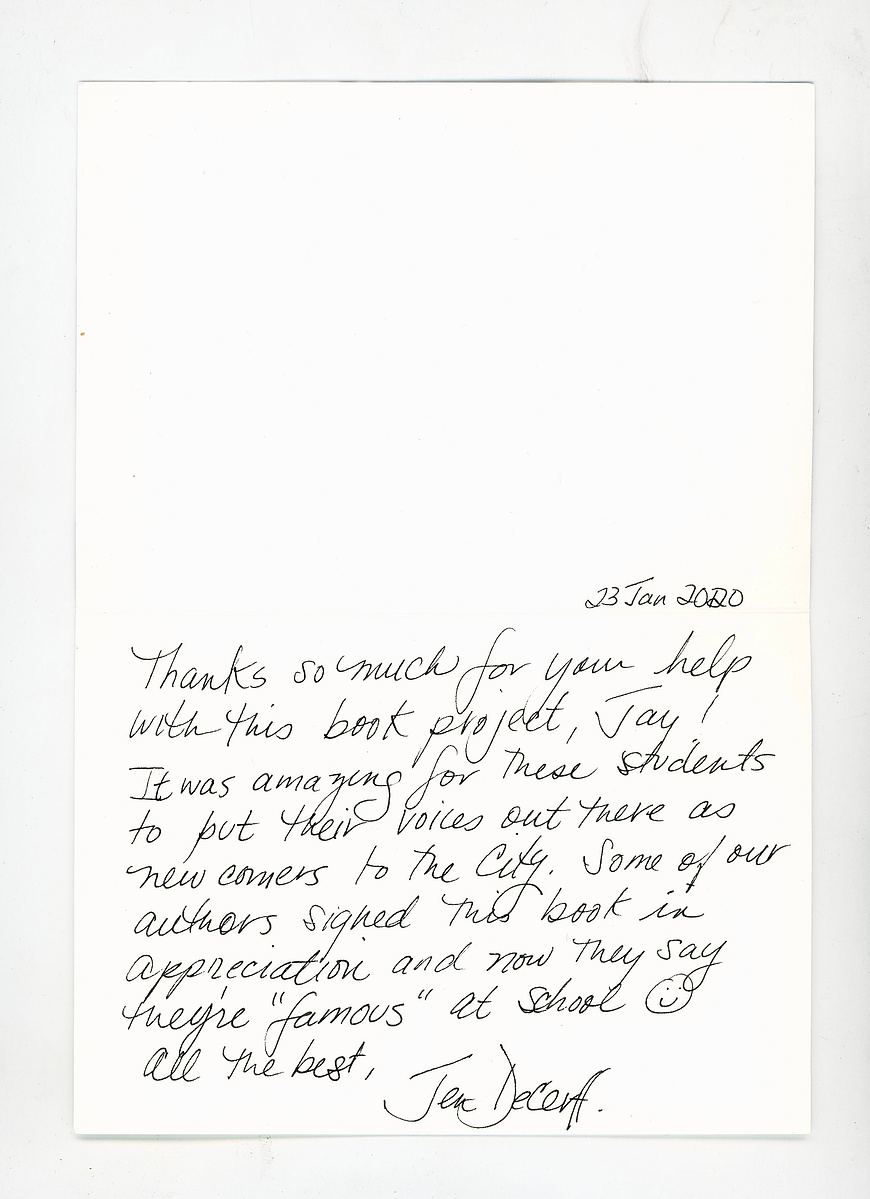 23 Jan 2020
Thanks so much for your help
with this book project, Jay!
It was amazing for these students
to put their voices out there as
new comers to the City. Some of our
authors signed this book in
appreciation and now they say
they're "famous" at school ☺
all the best,
Jen DeCerff.